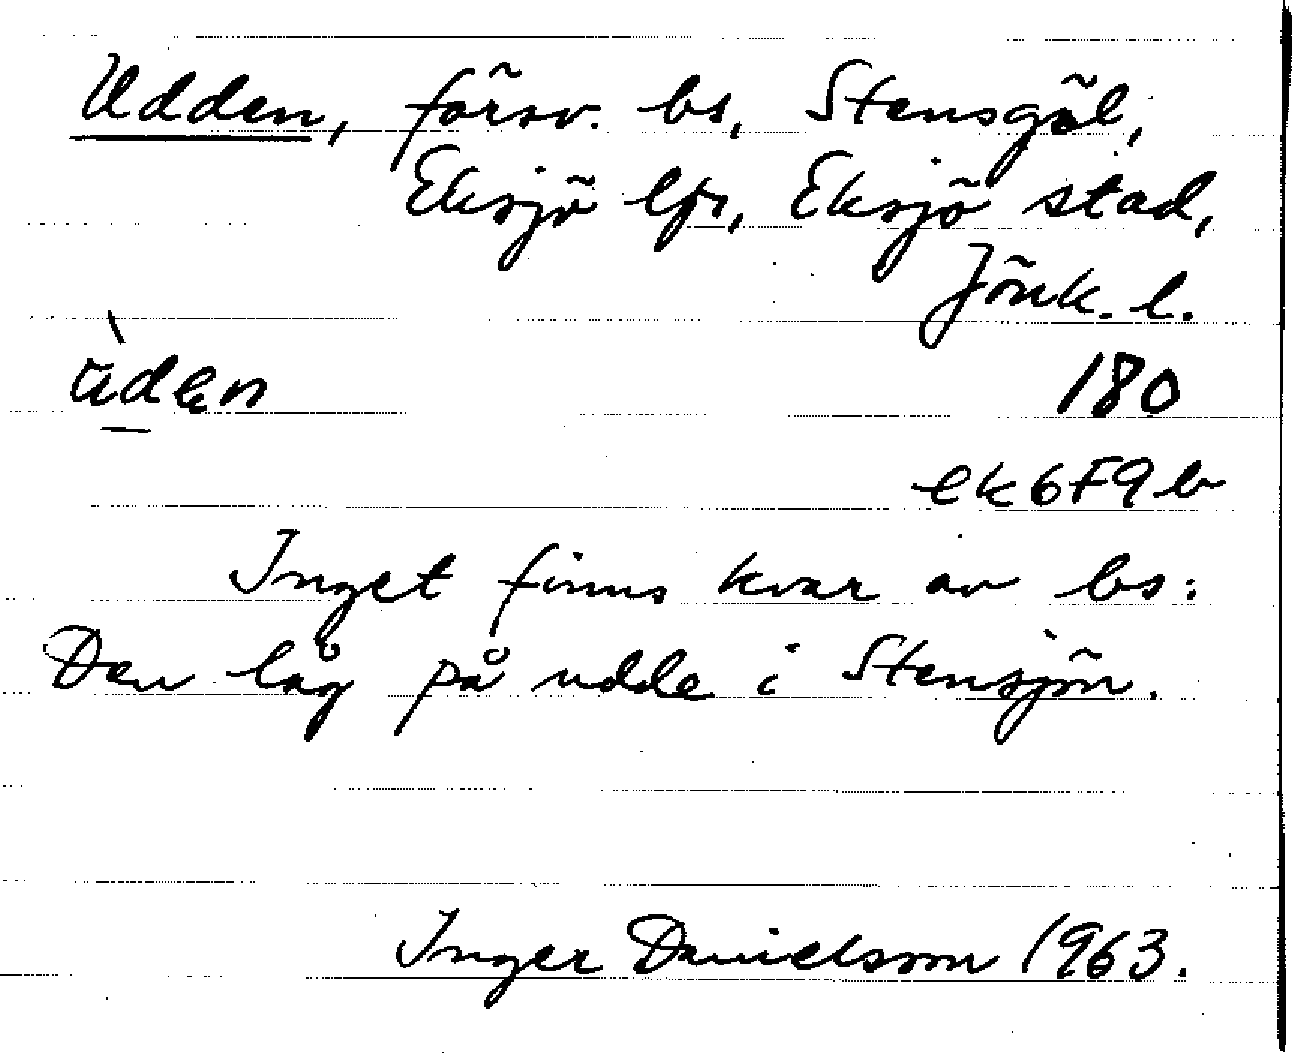 Udden, försv. bs, Stensgöl,
Eksjö lfs, Eksjö stad,
Jönk. l.
ùden 180
ek 6F9b
Inget finns kvar av bs.
Den låg på udde i Stensjön.
Inger Danielsson 1963.